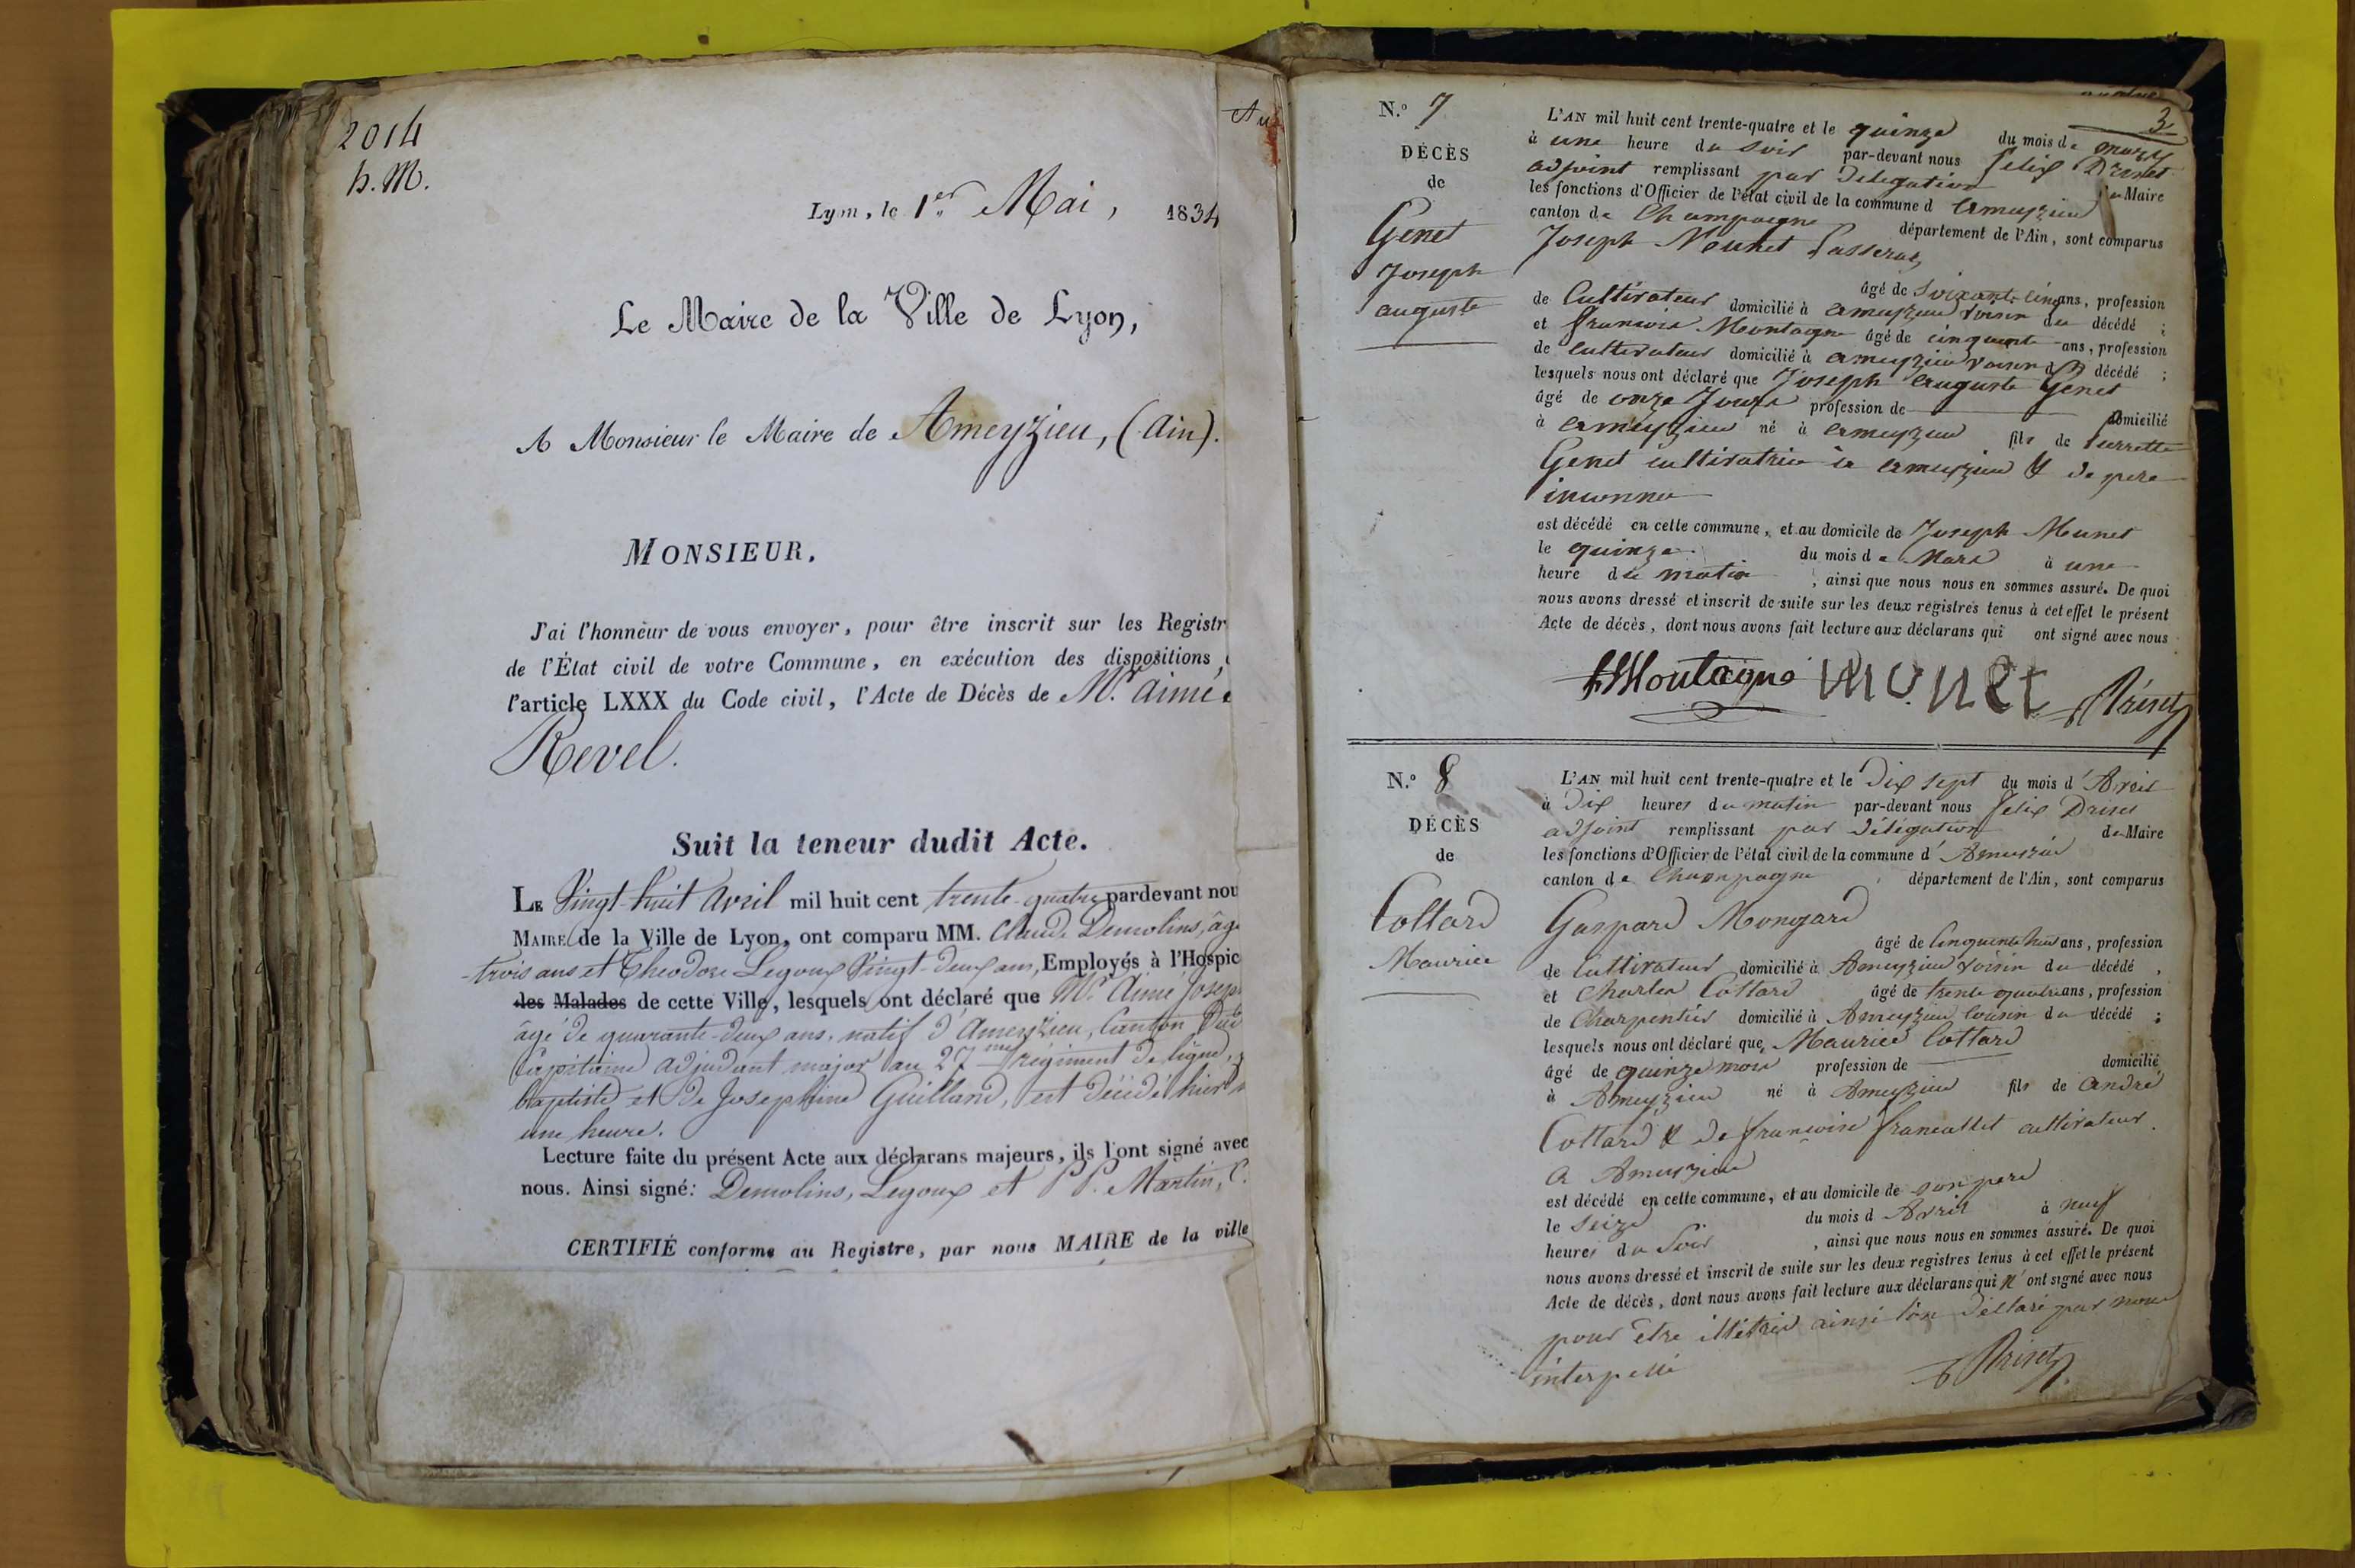 2014
h. M.
Lyon, le 1er Mai, 1834
Le Maire de la Ville de Lyon,
A Monsieur le Maire de Ameyzieu, (Ain).
MONSIEUR.
J'ai l'honneur de vous envoyer, pour être inscrit sur les Registr
de l'État civil de votre Commune, en exécution des dispositions
l'article LXXX du Code civil, l'Acte de Décès de Mr. Aimé
Revel.
Suit la teneur dudit Acte.
LE Vingt-huit Avril mil huit cent trente-quatre pardevant nou
MAIRE de la Ville de Lyon, ont comparu MM. Claude Demolins, âg
trois ans et Théodore Legoux Vingt-deux ans, Employés à l'Hospic
des Malades de cette Ville, lesquels ont déclaré que Mr. Aimé Josep
âgé de quarante-deux ans, natif d'Ameyzieu, Canton Dud
Capitaine adjudant major au 27me régiment de ligne,
baptiste et de Josephine Guilland, est décédé hier
une heure.
Lecture faite du présent Acte aux déclarans majeurs, ils l'ont signé avec
nous. Ainsi signé: Demolins, Legoux et P. P. Martin,
CERTIFIÉ conforme au Registre, par nous MAIRE de la ville
Au
3
N.º 7
DÉCÈS
de
Genet
Joseph
auguste
L'AN mil huit cent trente-quatre et le quinze du mois de mars
à une heure du soir par-devant nous Felix Drinet
adjoint remplissant par delegation du Maire
les fonctions d'Officier de l'état civil de la commune d ameyzieu
canton de Champagne département de l'Ain, sont comparus
Joseph Meunet Passerat
âgé de soixante cinq ans, profession
de Cultivateur domicilié à ameyzieu voisin du décédé ;
et francois Montagne âgé de cinquante ans, profession
de cultivateur domicilié à ameyzieu voisin du décédé ;
lesquels nous ont déclaré que Joseph auguste Genet
âgé de onze Jours profession de domicilié
à ameyzieu né à ameyzieu fils de pierrette
Genet cultivatrice à ameyzieu & de pere
inconnu
est décédé en cette commune, et au domicile de Joseph Meunet
le quinze du mois de Mars à une
heure du matin, ainsi que nous nous en sommes assuré. De quoi
nous avons dressé et inscrit de suite sur les deux registres tenus à cet effet le présent
Acte de décès, dont nous avons fait lecture aux déclarans qui ont signé avec nous
Montagne Monet Drinet
N.º 8
DÉCÈS
de
Cottard
Maurice
L'AN mil huit cent trente-quatre et le Dix sept du mois d'Avril
à Dix heures du matin par-devant nous Felix Drinet
adjoint remplissant par délégation du Maire
les fonctions d'Officier de l'état civil de la commune d'Ameyzieu
canton de Champagne département de l'Ain, sont comparus
Gaspard Mongard
âgé de Cinquante huit ans, profession
de Cultivateur domicilié à Ameyzieu voisin du décédé ,
et Charles Cottard âgé de trente quatre ans, profession
de Charpentier domicilié à Ameyzieu cousin du décédé ;
lesquels nous ont déclaré que, Maurice Cottard
âgé de quinze mois profession de domicilié
à Ameyzieu né à Ameyzieu fils de andré
Cottard & de francoise francallet cultivateur.
a Ameyzieu
est décédé en cette commune, et au domicile de son pere
le seize du mois d Avril à neuf
heures du Soir, ainsi que nous nous en sommes assuré. De quoi
nous avons dressé et inscrit de suite sur les deux registres tenus à cet effet le présent
Acte de décès, dont nous avons fait lecture aux déclarans qui n'ont signé avec nous
pour être illétrés ainsi l'on déclaré par nous
interpellé
Drinet